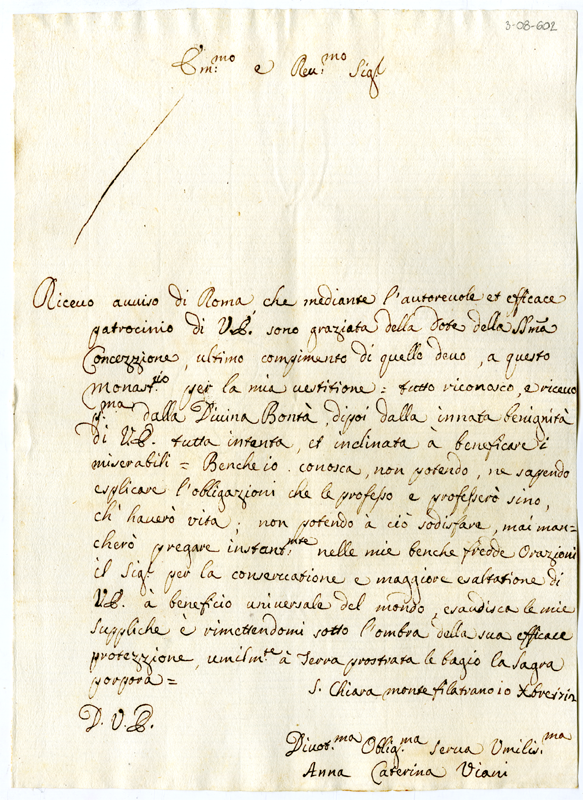 3-08-602
Em.mo e Reu.mo Sigr
Riceuo auuiso di Roma, che mediante l'autoreuole et efficace
patrocinio di V.E. sono graziata della Dote della SSma
Concezzione, ultimo compimento di quello deuo, a questo
Monast.rio per la mia uestitione = tutto riconosco, e riceuo
p.ma dalla Diuina Bontà, dipoi dalla innata benignità
di V.E. tutta intenta, et inclinata à beneficare i
miserabili = Benche io conosca, non potendo, ne sapendo
esplicare l'obligazioni che le professo e professerò sino,
ch' hauerò uita; non potendo à ciò sodisfare, mai man-
cherò pregare instant.mte nelle mie benche fredde Orazioni
il Sigr per la conseruatione e maggiore esaltatione di
V.E. à beneficio uniuersale del mondo, esaudisca le mie
suppliche è rimettendomi sotto l'ombra della sua efficace
protezzione, umilm.te à Terra prostrata le bagio la sagra
porpora =
S. Chiara monte filatrano io Xbre
D. V. E.
Diuot.ma Oblig.ma Serua Vmilis.ma
Anna Caterina Viani